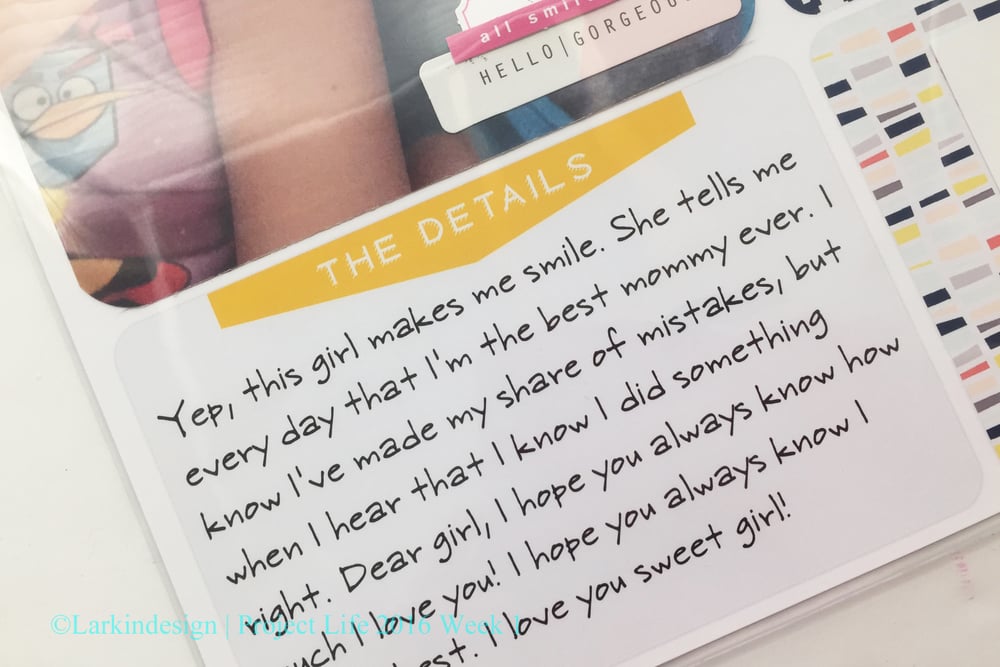 all smiles
HELLO|GORGEOUS
THE DETAILS
Yep, this girl makes me smile. She tells me
every day that I'm the best mommy ever. I
know I've made my share of mistakes, but
when I hear that I know I did something
right. Dear girl, I hope you always know how
much I love you! I hope you always know I
best. I love you sweet girl!
©Larkindesign | Project Life 2016 Week 1